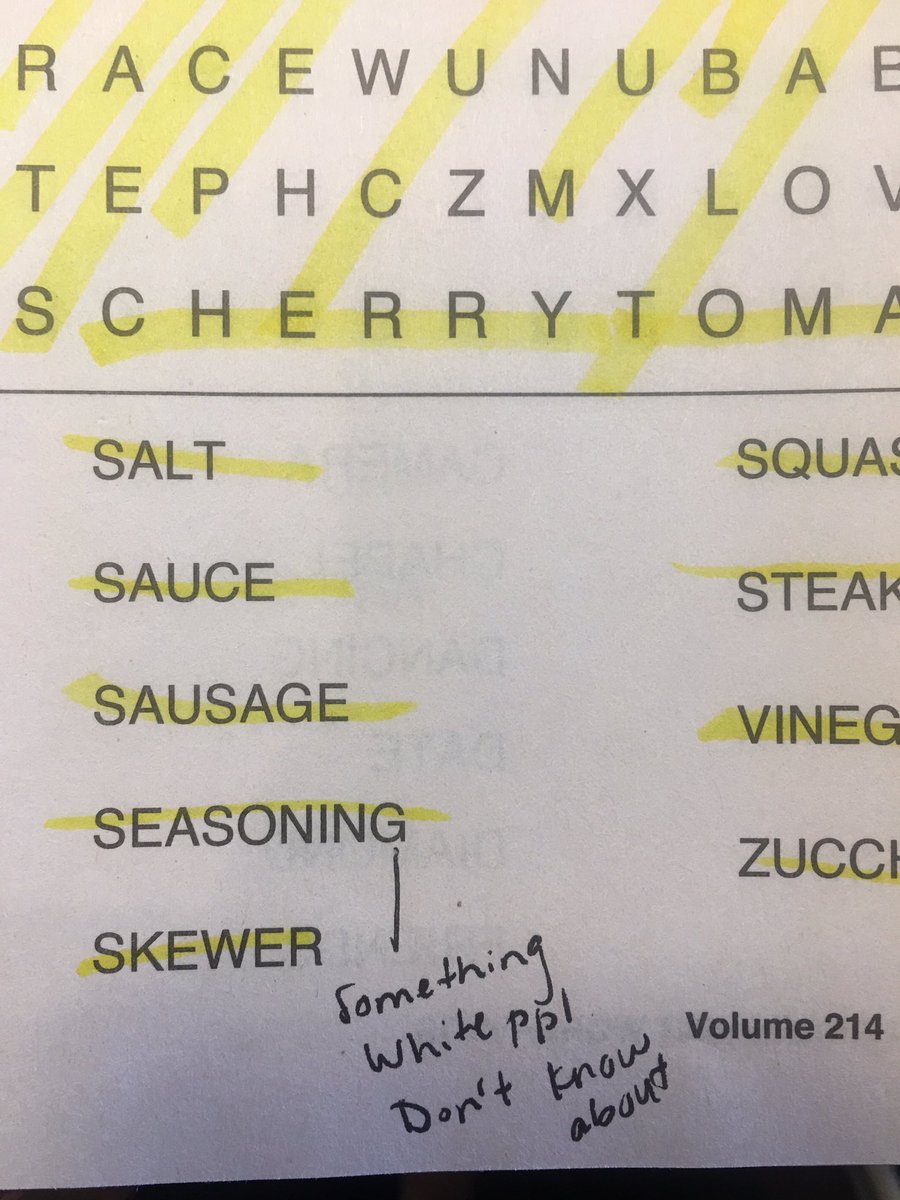 R A C E W U N U B A B
T E P H C Z M X L O V
S C H E R R Y T O M A
SALT
SQUAS
SAUCE
STEAK
SAUSAGE
VINEG
SEASONING
ZUCCH
SKEWER
Something
White ppl
Don't know
about
Volume 214